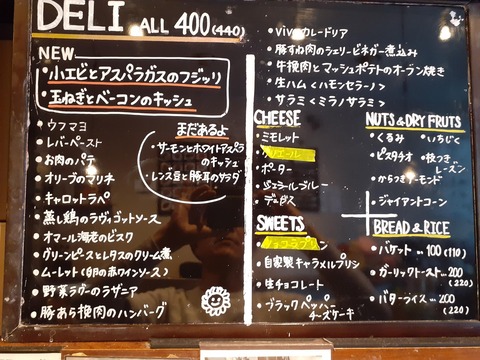 DELI ALL 400(440)
NEW
・小エビとアスパラガスのフジッリ
・玉ねぎとベーコンのキッシュ
・ウフマヨ
・レバーペースト
・お肉のパテ
・オリーブのマリネ
・キャロットラペ
・蒸し鶏のラヴィゴットソース
・オマール海老のビスク
・グリーンピースとレタスのクリーム煮
・ムーレット(卵の赤ワインソース)
・野菜ラグーのラザニア
・豚あら挽肉のハンバーグ
まだあるよ
・サーモンとホワイトアスパラ
のキッシュ
・レンズ豆と豚耳のサラダ
・Vivoカレードリア
・豚すね肉のシェリービネガー煮込み
・牛挽肉とマッシュポテトのオーブン焼き
・生ハム<ハモンセラーノ>
・サラミ<ミラノサラミ>
CHEESE
・ミモレット
・ポーター
SWEETS
・ショコラプリン
・自家製キャラメルプリン
・生チョコレート
・ブラックペッパー
チーズケーキ
NUTS & DRY FRUTS
・くるみ ・いちじく
・ピスタチオ ・枝つき
レーズン
・からつきアーモンド
・ジャイアントコーン
BREAD & RICE
・バゲット … 100 (110)
・ガーリックトースト … 200
(220)
・バターライス … 200
(220)